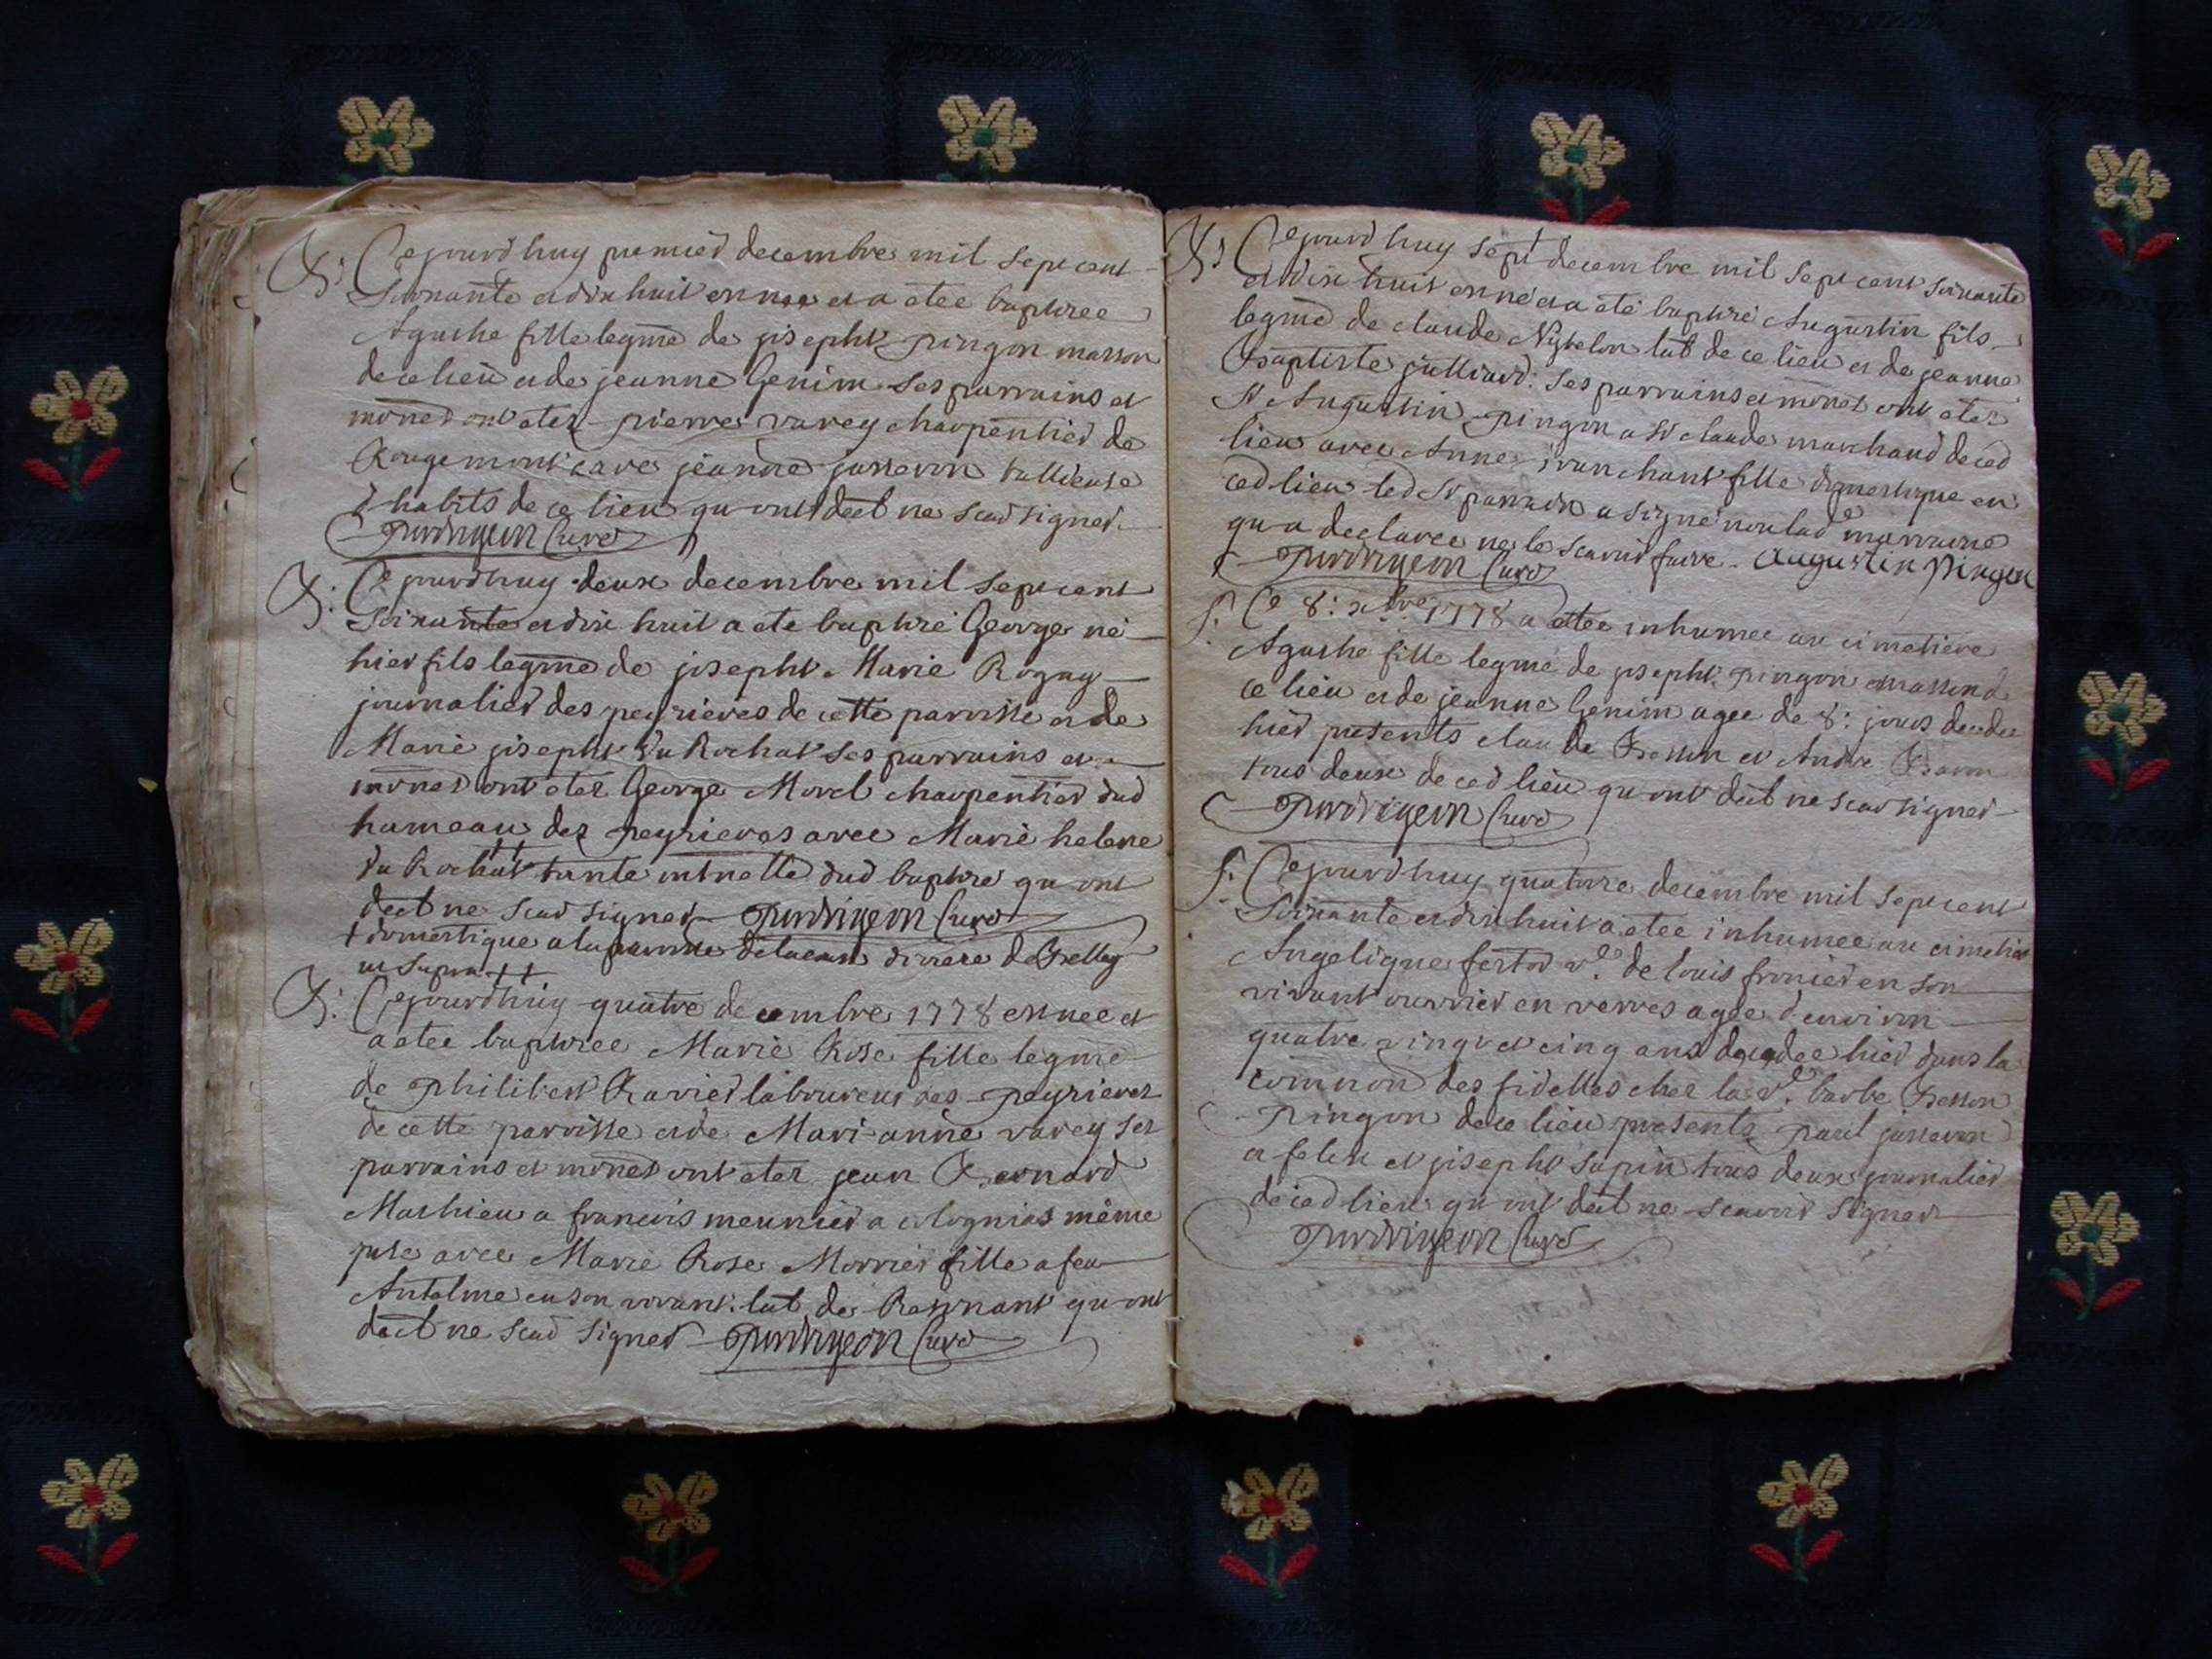 B: Cejourd huy premier decembre mil sept cent
soixante et dix huit est nee et a etee baptisee
Agathe fille legme de joseph pingon masson
de ce lieu et de jeanne Genim ses parrains et
mones ont etez pierre varey charpentier de
Rougemont avec jeanne josseron
d habits de ce lieu qu ont declt ne scav signer.
Curé
B: Cejourd huy deux decembre mil sept cent
soixante et dix huit a ete baptisé George né
hier fils legme de joseph Marie Rogay
journalier des peyrieres de cette paroisse et de
Marie joseph du Rochat ses parrains et
mones ont etez George Morel charpentier dud
hameau des peyrieres avec Marie helene
du Rochat ++ tante dud baptisé qu ont
declt ne scav signer Curé
+ domestique a la paroisse de
ut supra ++
B: Cejourd huy quatre decembre 1778 est nee et
a etee baptisee Marie Rose fille legme
de philibert Ravier laboureur des peyrieres
de cette paroisse et de Mari anne varey ses
parrains et mones ont etez jean Bernard
Mathieu a francois meunier a colognias même
psse avec Marie Rose Morrier fille a feu
Antelme en son vivant labt de qu ont
declt ne scav signer Curé
B: Cejourd huy sept decembre mil sept cent soixante
et dix huit est né et a été baptisé Augustin fils
legme de claude labt de ce lieu et de jeanne
Baptiste julliard: ses parrains et mones ont etez
Sr Augustin pingon a Sr claude marchand de ced
lieu avec Anne fille domestique en
ced lieu led Sr parrain a signé non lade marraine
qu a declaree ne le scavoir faire. Augustin pingon
Curé
S: Ce 8: xbre 1778 a etee inhumee au cimetiere
Agathe fille legme de joseph pingon masson de
ce lieu et de jeanne Genim agee de 8: jours decedee
hier presents claude Besson et André Baron
tous deux de ced lieu qu ont declt ne scav signer
Curé
S: Cejourd huy quatorze decembre mil sept cent
soixante et dix huit a etee inhumee au cimetiere
Angelique fertor ve de louis fronier en son
vivant ouvrier en verres agee d environ
quatre vingt et cinq ans decedee hier dans la
common des fidelles chez la ve barbe Besson
pingon de ce lieu presents paul josseron
a felix et joseph Sapin tous deux journalier
de ced lieu qu ont declt ne scavoir signer
Curé